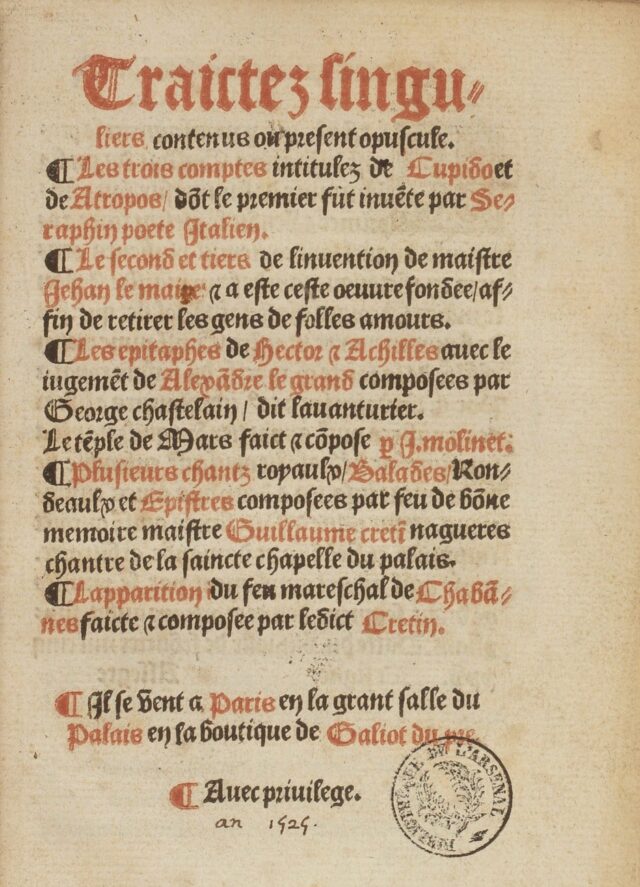 Traictez singu-
liers contenus ou present opuscule.
¶ Les trois comptes intitulez de Cupido et
de Atropos / dõt le premier fut inuẽte par Se-
raphin poete Italien.
¶ Le second et tiers de linuention de maistre
Jehan le maire: ⁊ a este ceste oeuure fondee / af-
fin de retirer les gens de folles amours.
¶ Les epitaphes de Hector ⁊ Achilles auec le
iugemẽt de Alexãdre le grand composees par
George chastelain / dit lauanturier.
Le tẽple de Mars faict ⁊ cõpose ꝑ J. molinet.
¶ Plusieurs chantz royaulx / Balades / Ron-
deaulx et Epistres composees par feu de bõne
memoire maistre Guillaume cretĩ nagueres
chantre de la saincte chapelle du palais.
¶ Lapparition du feu mareschal de Chabã-
nes faicte ⁊ composee par ledict Cretin.
¶ Il se vent a Paris en la grant salle du
Palais en la boutique de Galiot du pre.
¶ Auec priuilege.
an 1525.
BIBLIOTHÈQUE DE L'ARSENAL